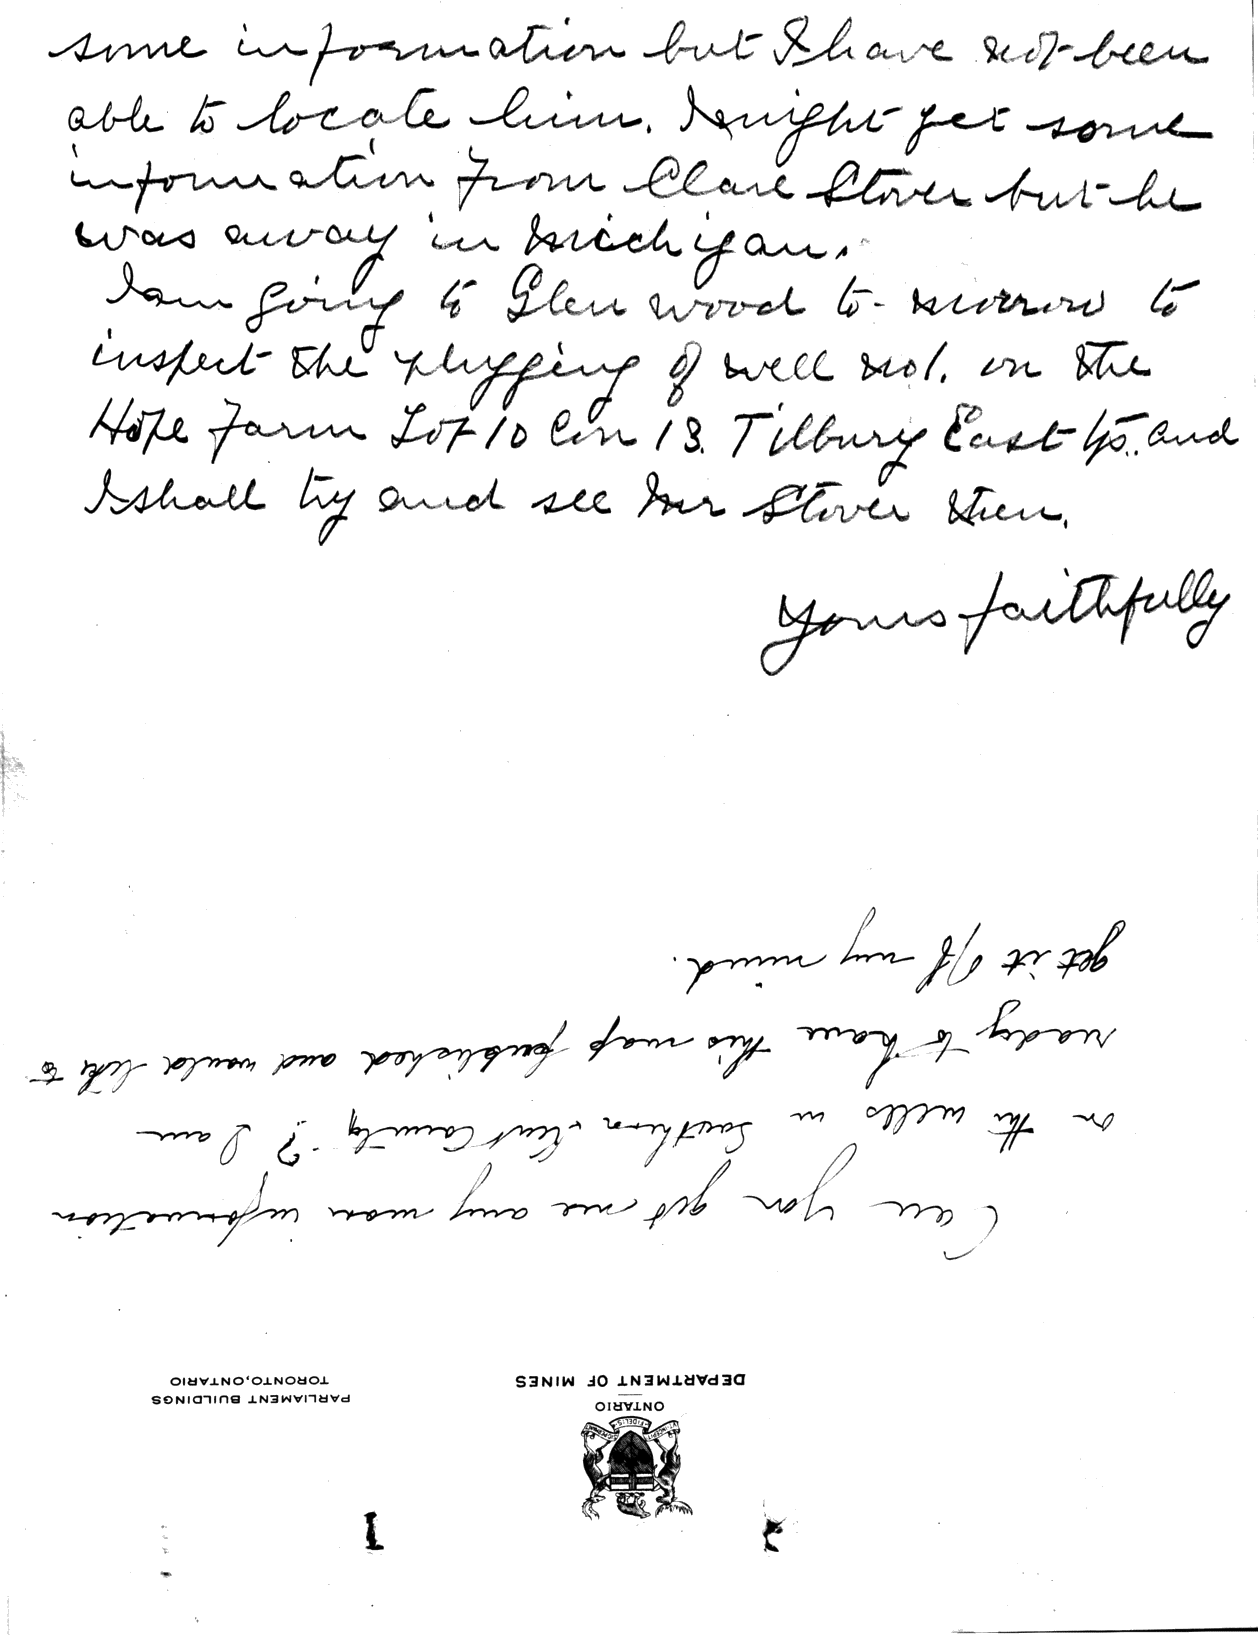 some information but I have not been
able to locate him. I might get some
information from Clare Stover but he
was away in Michigan.
I am going to Glenwood to-morrow to
inspect the plugging of well no1. on the
Hope Farm Lot 10 Con 13. Tilbury East tp. and
I shall try and see Mr Stover then.
Yours faithfully
2 1
ONTARIO
DEPARTMENT OF MINES
PARLIAMENT BUILDINGS
TORONTO, ONTARIO
Can you get me any more information
on the wells in Southern Kent County? I am
ready to have this map published and would like to
get it off my mind.